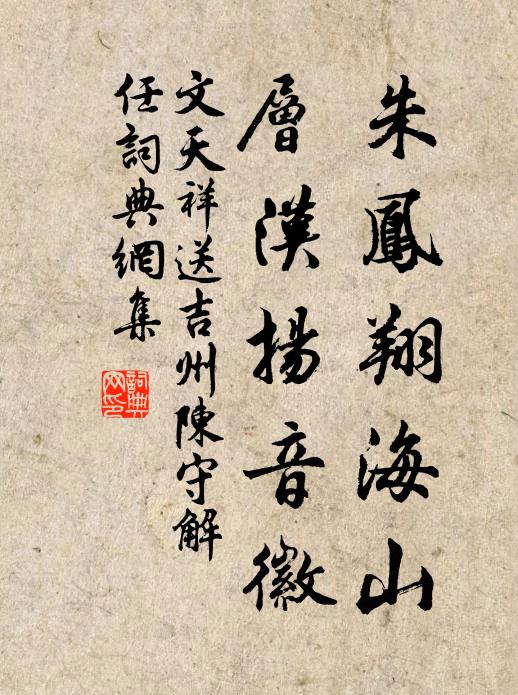 朱鳳翔海山
層漢揚音徽
文天祥送吉州陳守解
任詞典網集
詞典
网印